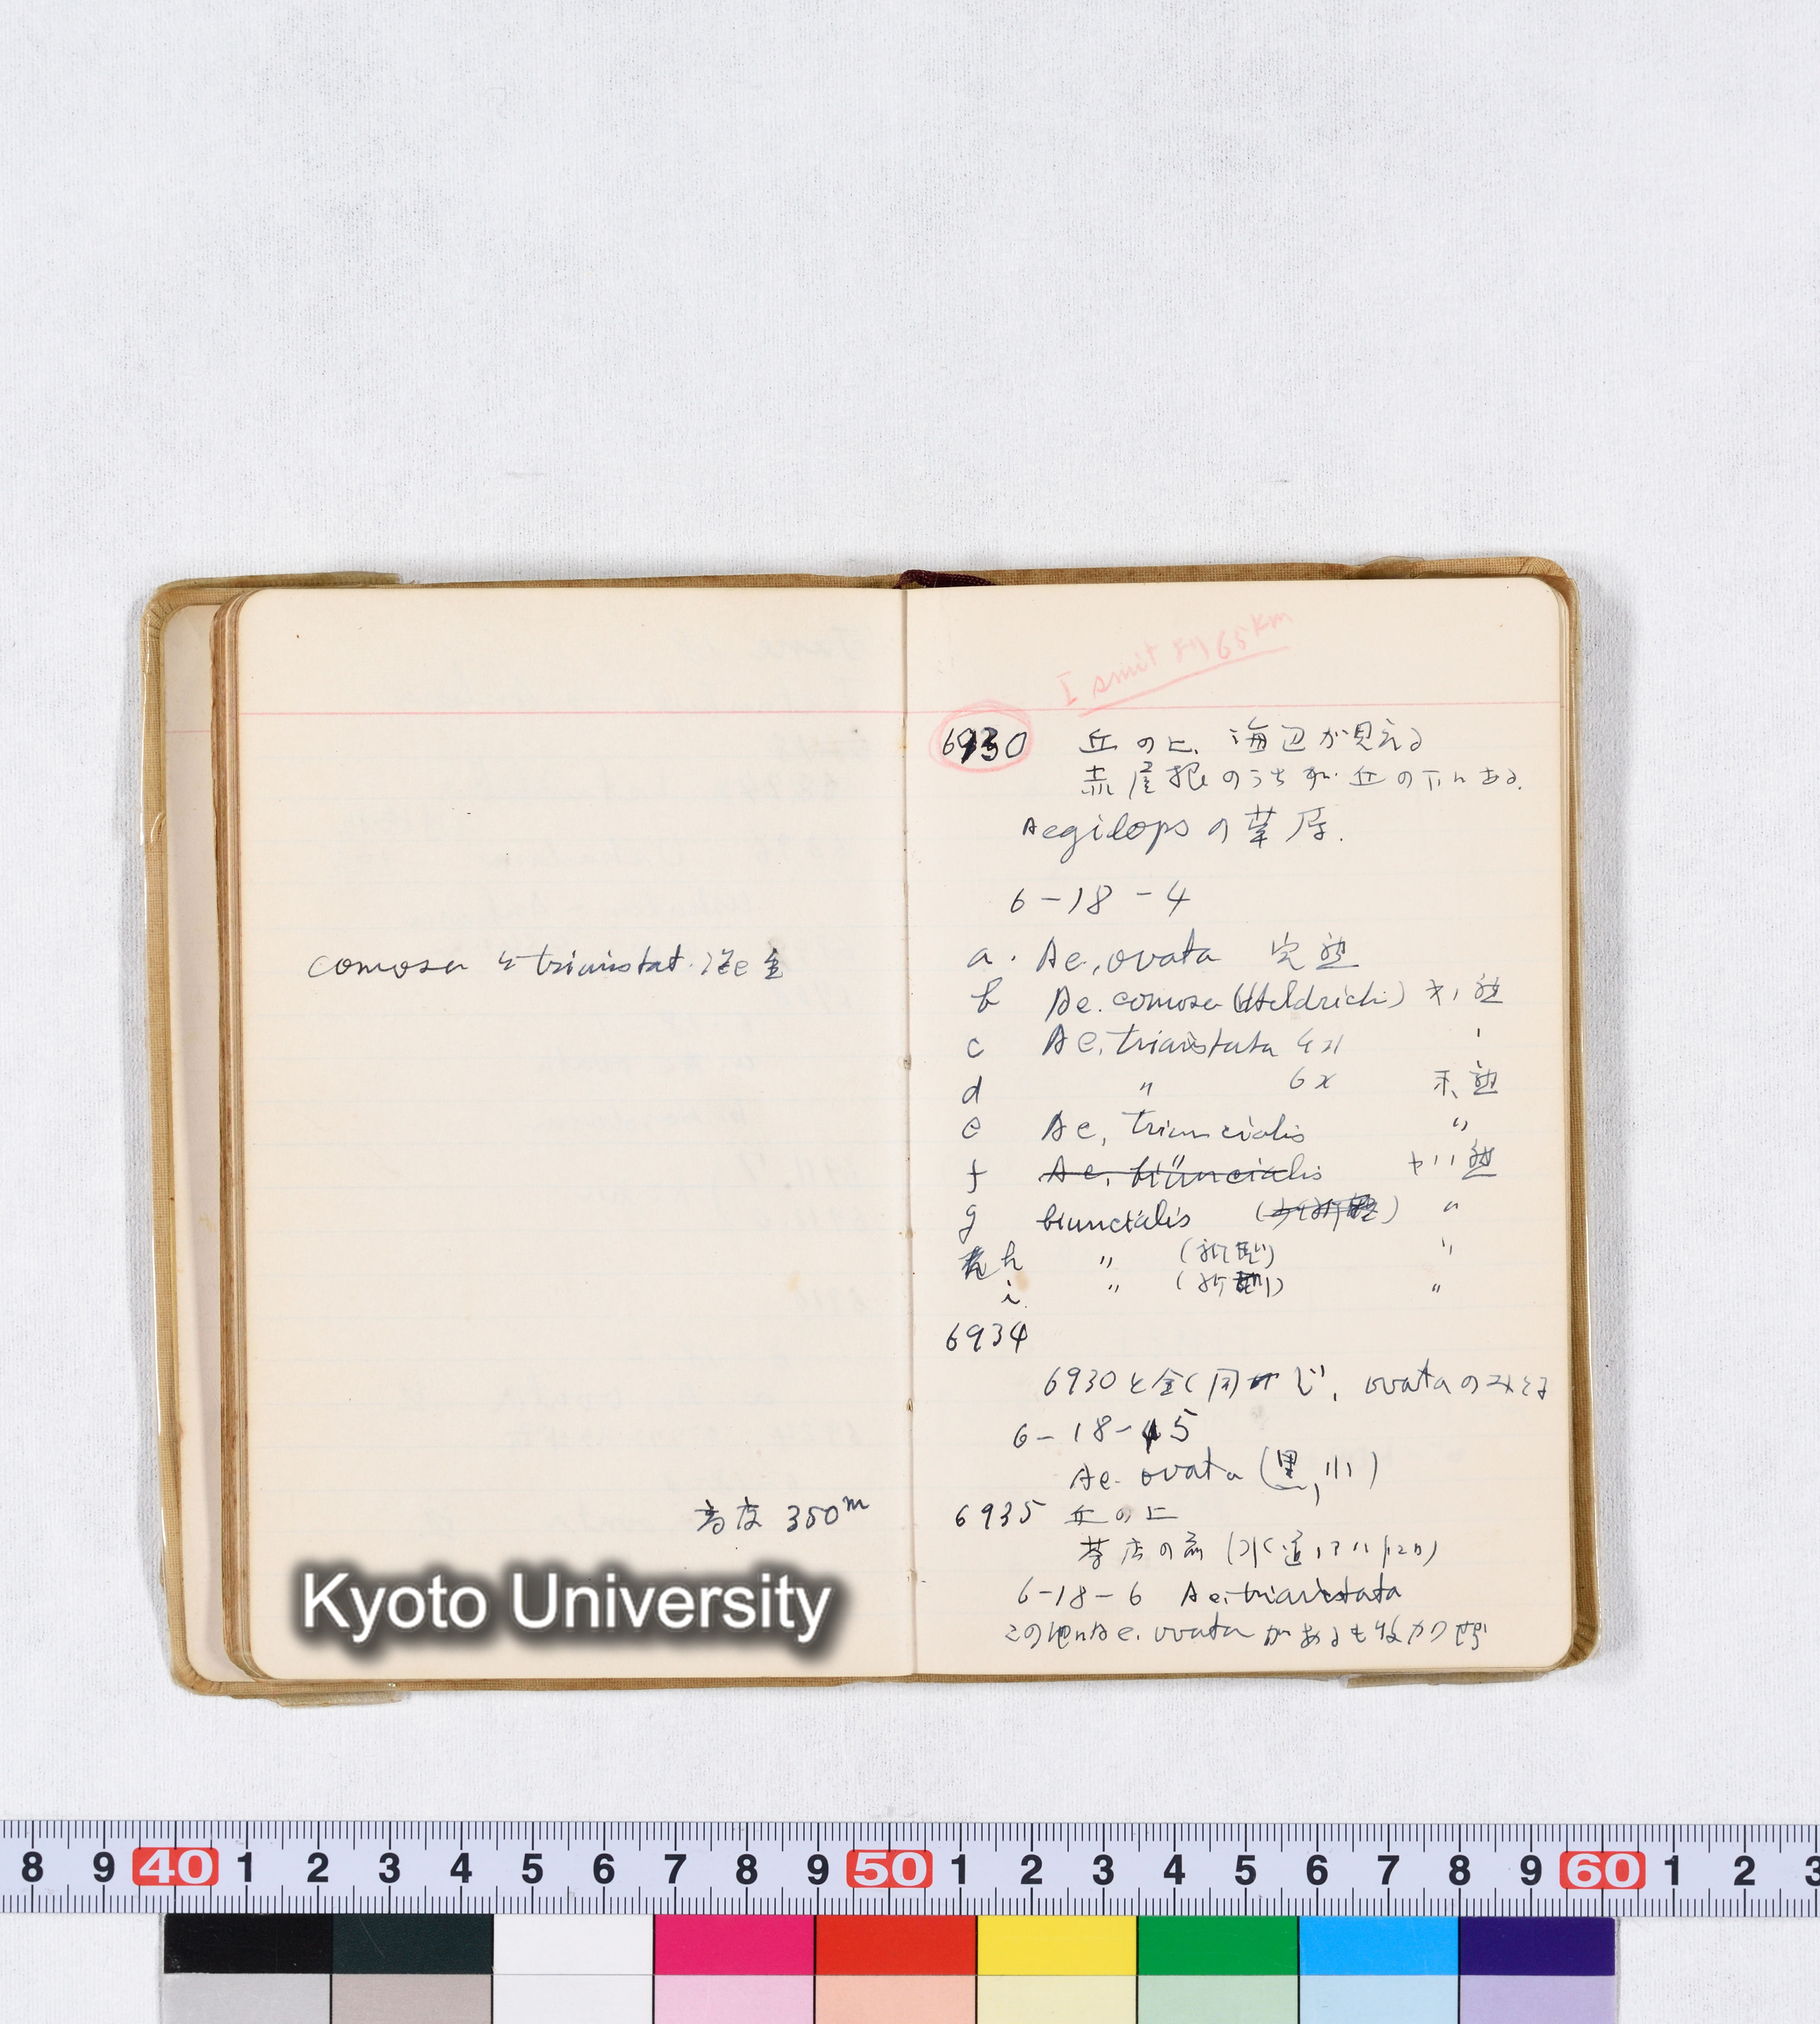 comosa と triaristat. 混
高度 350m
Kyoto University
Ismit より 65km
6930 丘の上、海辺が見える
赤屋根のうちが丘の下にある.
Aegilops の草原.
6-18-4
a. Ae. ovata 完熟
b Ae. comosa (Heldrichi) 熟
c Ae. triaristata 4x
d 〃 6x 未熟
e Ae. triuncialis 〃
f Ae. biuncialis 熟
g biuncialis 〃
h 〃 〃
i 〃 〃
6934
6930と全く同じ、ovataのみとる
6-18-5
Ae. ovata (黒, 小)
6935 丘の上
茶店の前 (水道
6-18-6 Ae. triaristata
この他に Ae. ovata があるも
8 9 40 1 2 3 4 5 6 7 8 9 50 1 2 3 4 5 6 7 8 9 60 1 2 3